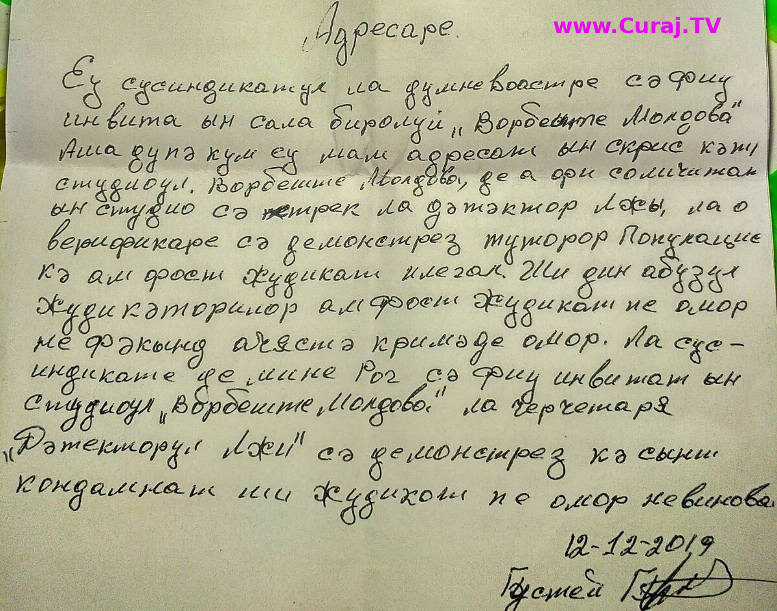 www.Curaj.TV
Адресаре.
Еу сусиндикатул ла думневоастре сә фиу
инвита ын сала биролуй „Ворбеште Молдова"
Аша дупә кум еу мам адресат ын скрис кәтı
студиоул. Ворбеште Молдова, де а фи соличитат
ын студио сә трек ла дәтәктор Лжы, ла о
верификаре сә демонстрез туторор Популацие
кә ам фост жудикат илегал. Ши дин абузул
жудикәторилор ам фост жудикат пе омор
не фәкынд ачястә кримә де омор. Ла сус-
индикате де мине Рог сә фиу инвитат ын
студиоул „Ворбеште Молдова." ла черчетаря
„Дәтекторул Лжи" сә демонстрез кә сынт
кондамнат ши жудикат пе омор невинова
12-12-2019
Густей